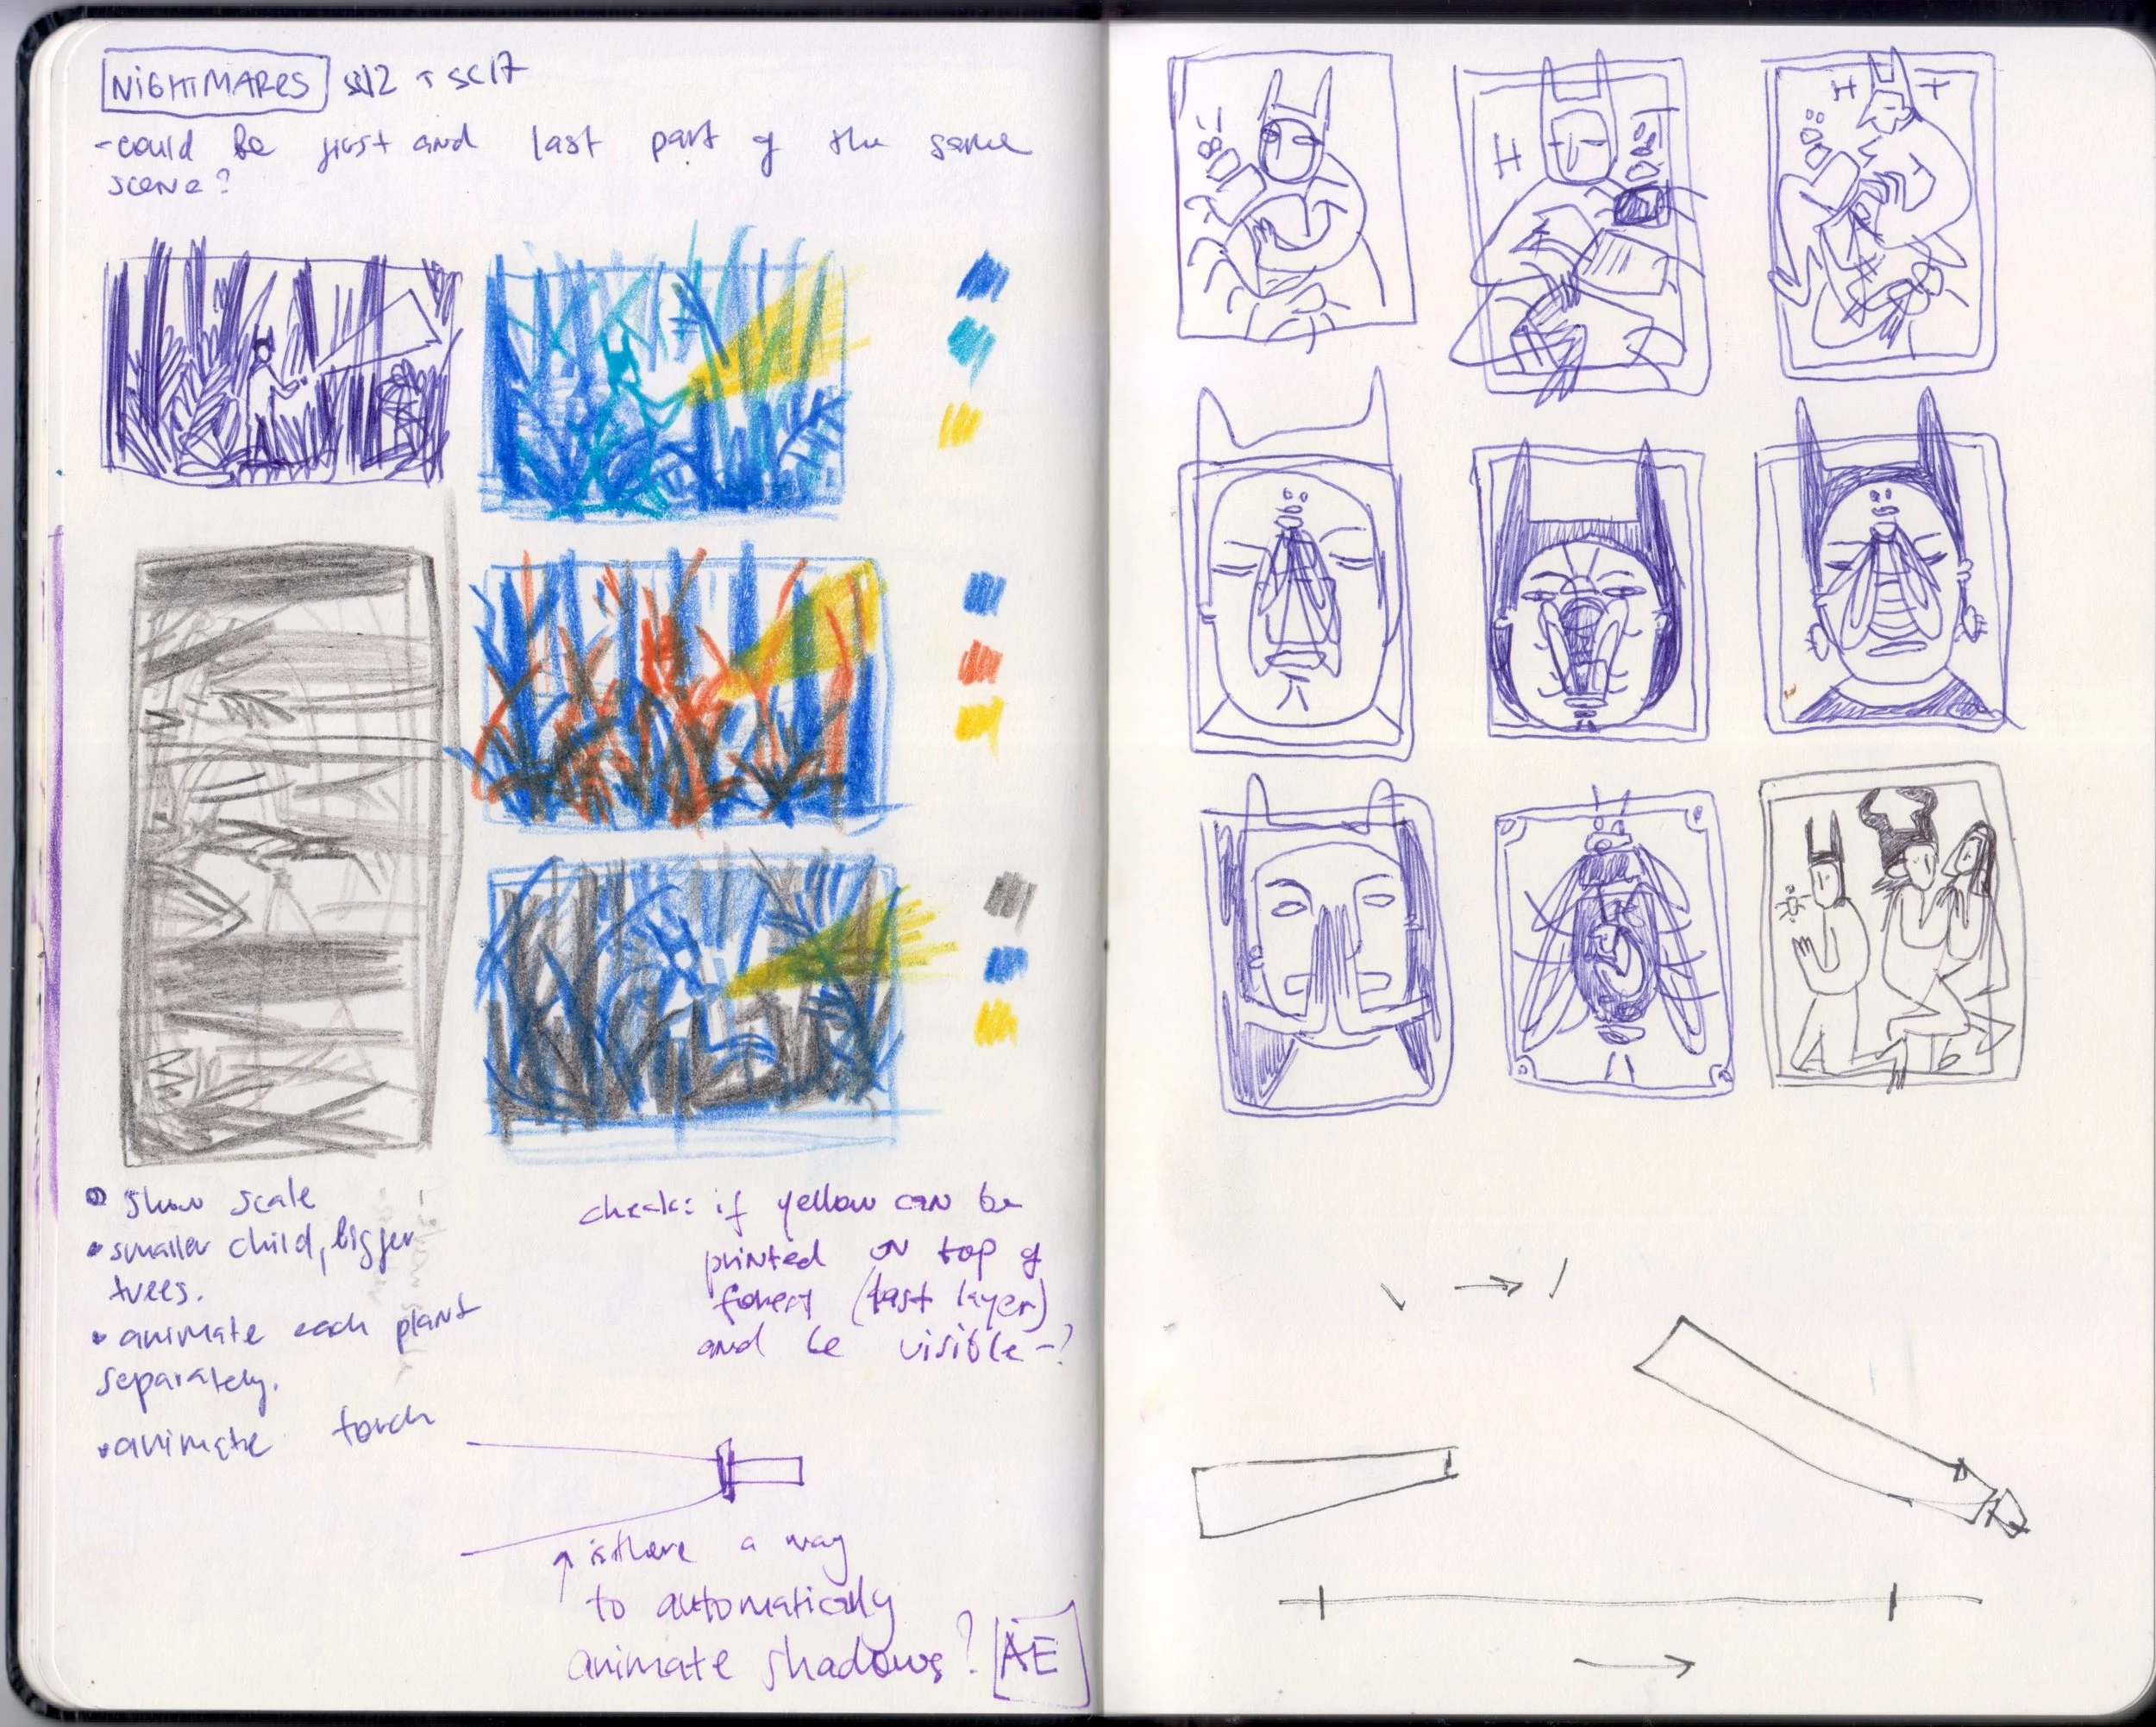 NIGHTMARES sc12 + sc17
- could be first and last part of the same
scene?
• show scale
• smaller child, bigger
trees.
• animate each plant
separately.
• animate torch
check: if yellow can be
printed on top of
forest (last layer)
and be visible -?
is there a way
to automatically
animate shadows? AE
H
H